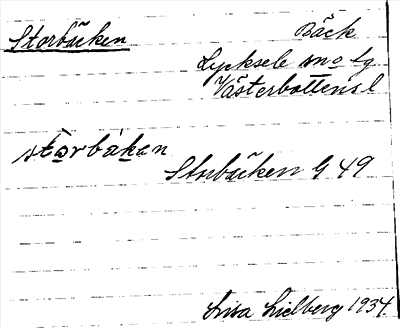 Storbäcken
Bäck
Lycksele sno tg
Västerbottens l
storbäkan
Storbäcken G 49
Lisa Lidberg 1934.